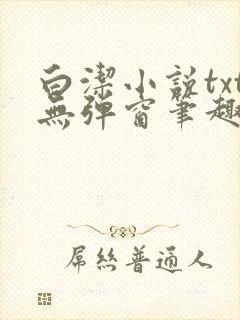 白潔小說txt
無彈窗筆趣
屌絲普通人